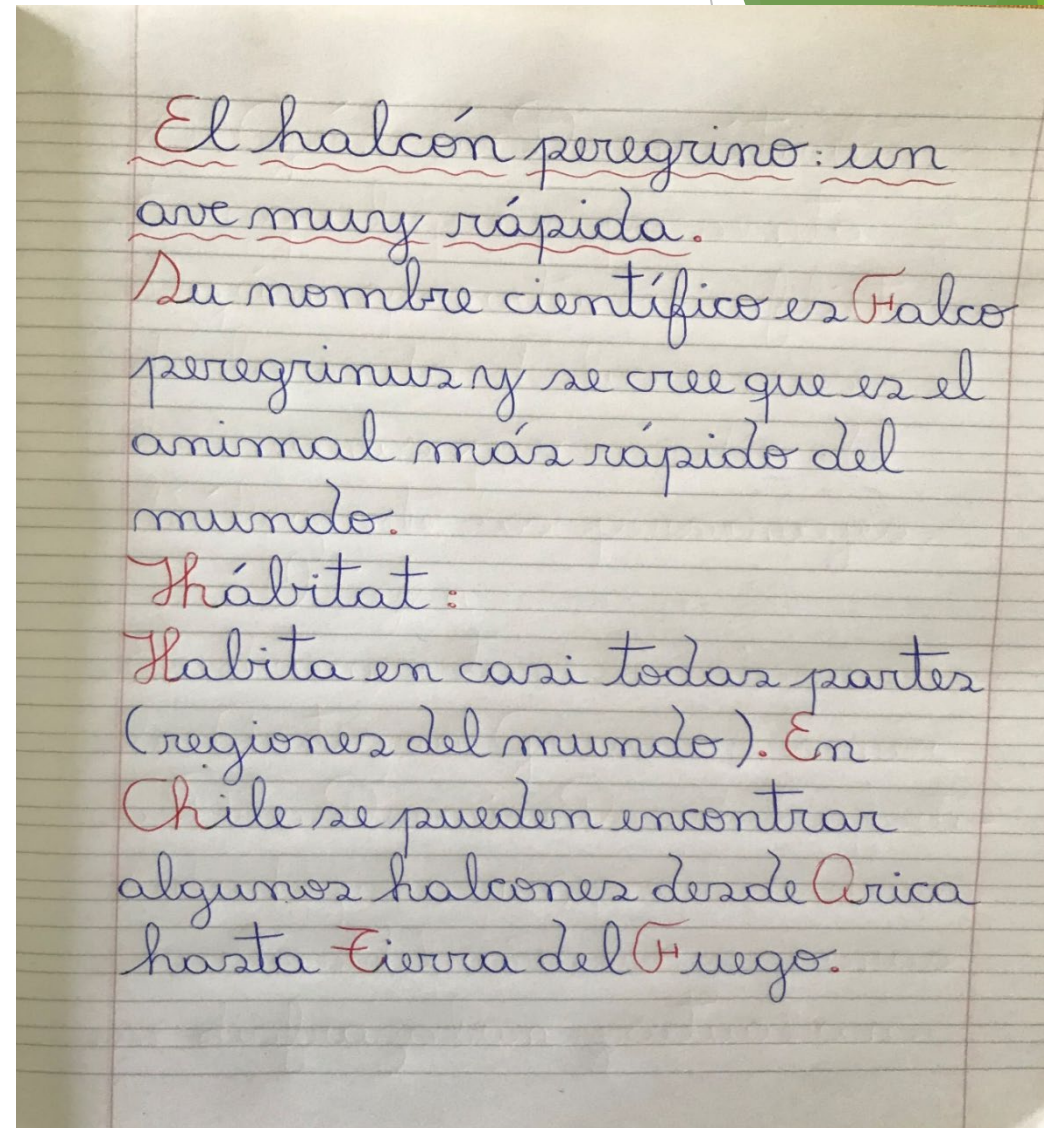 El halcón peregrino: un
ave muy rápida.
Su nombre científico es Falco
peregrinus y se cree que es el
animal más rápido del
mundo.
Hhábitat:
Habita en casi todas partes
(regiones del mundo). En
Chile se pueden encontrar
algunos halcones desde Arica
hasta Tierra del Fuego.